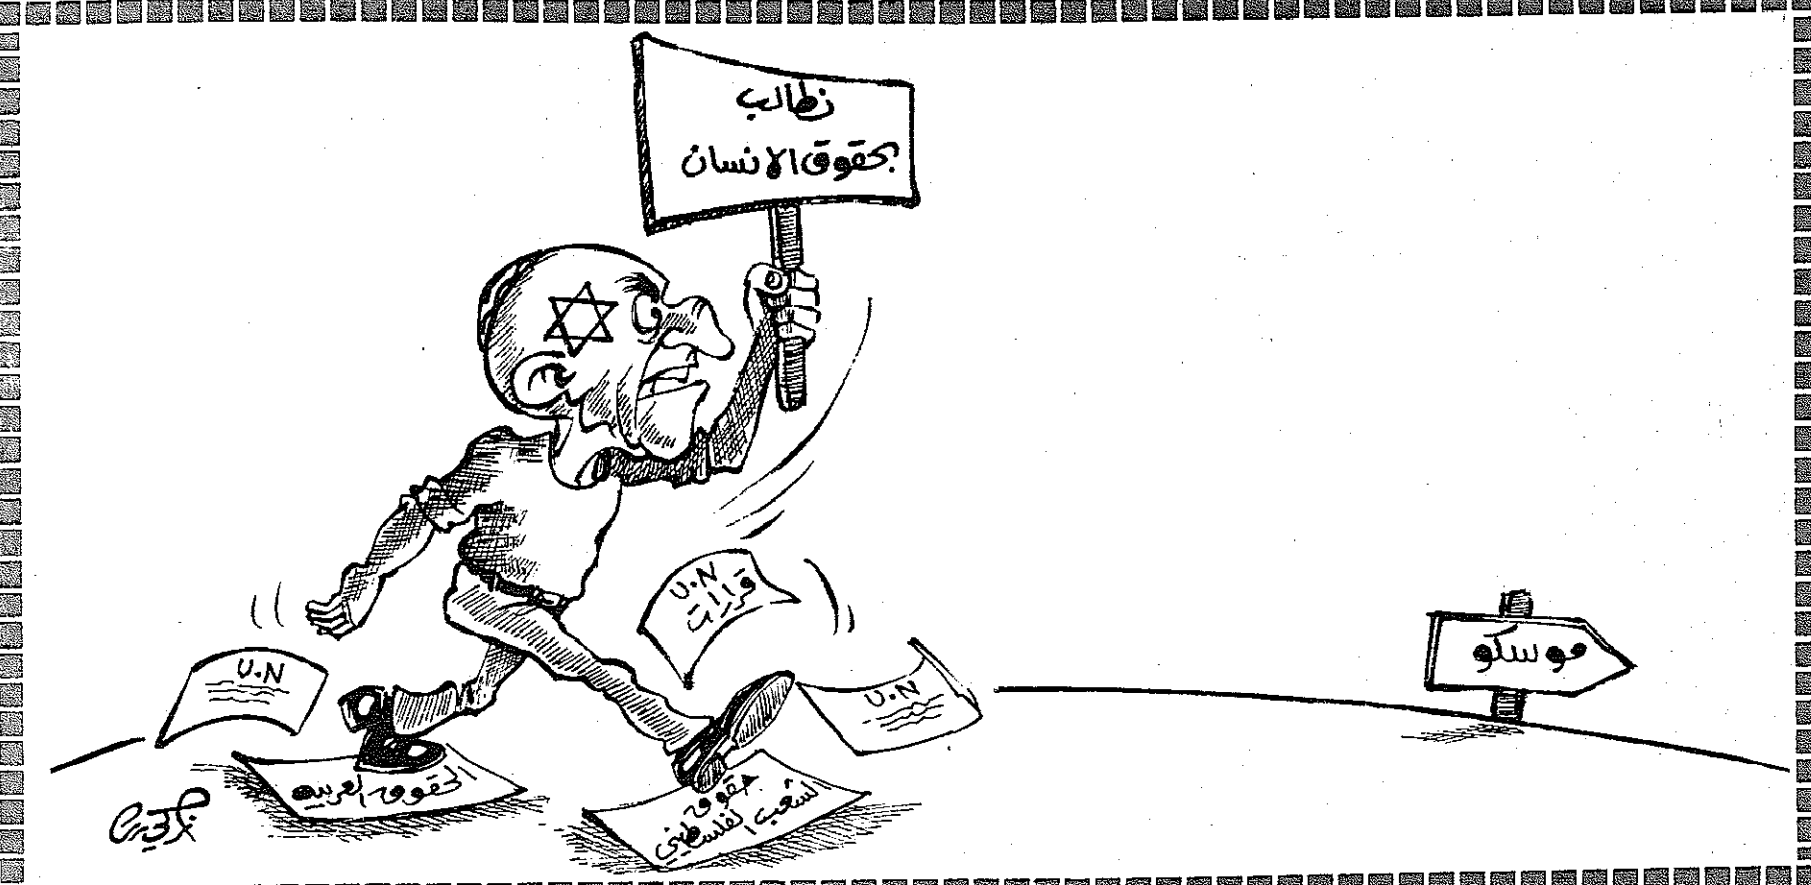 نطالب
بحقوق الانسان
U.N
قرارات
U.N
U.N
موسكو
الحقوق العربيه
حقوق
الشعب الفلسطيني